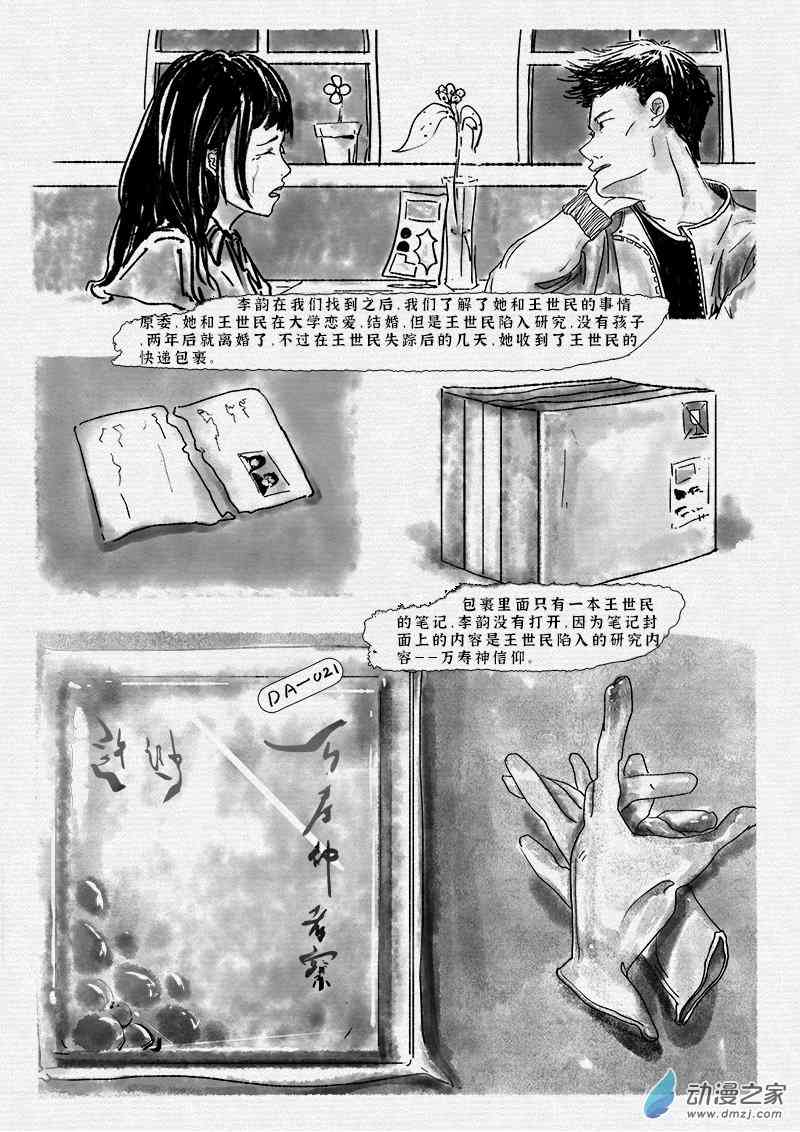 李韵在我们找到之后,我们了解了她和王世民的事情
原委,她和王世民在大学恋爱,结婚,但是王世民陷入研究,没有孩子
,两年后就离婚了,不过在王世民失踪后的几天,她收到了王世民的
快递包裹。
包裹里面只有一本王世民
的笔记,李韵没有打开,因为笔记封
面上的内容是王世民陷入的研究内
容--万寿神信仰。
DA-021
考察
动漫之家
www.dmzj.com